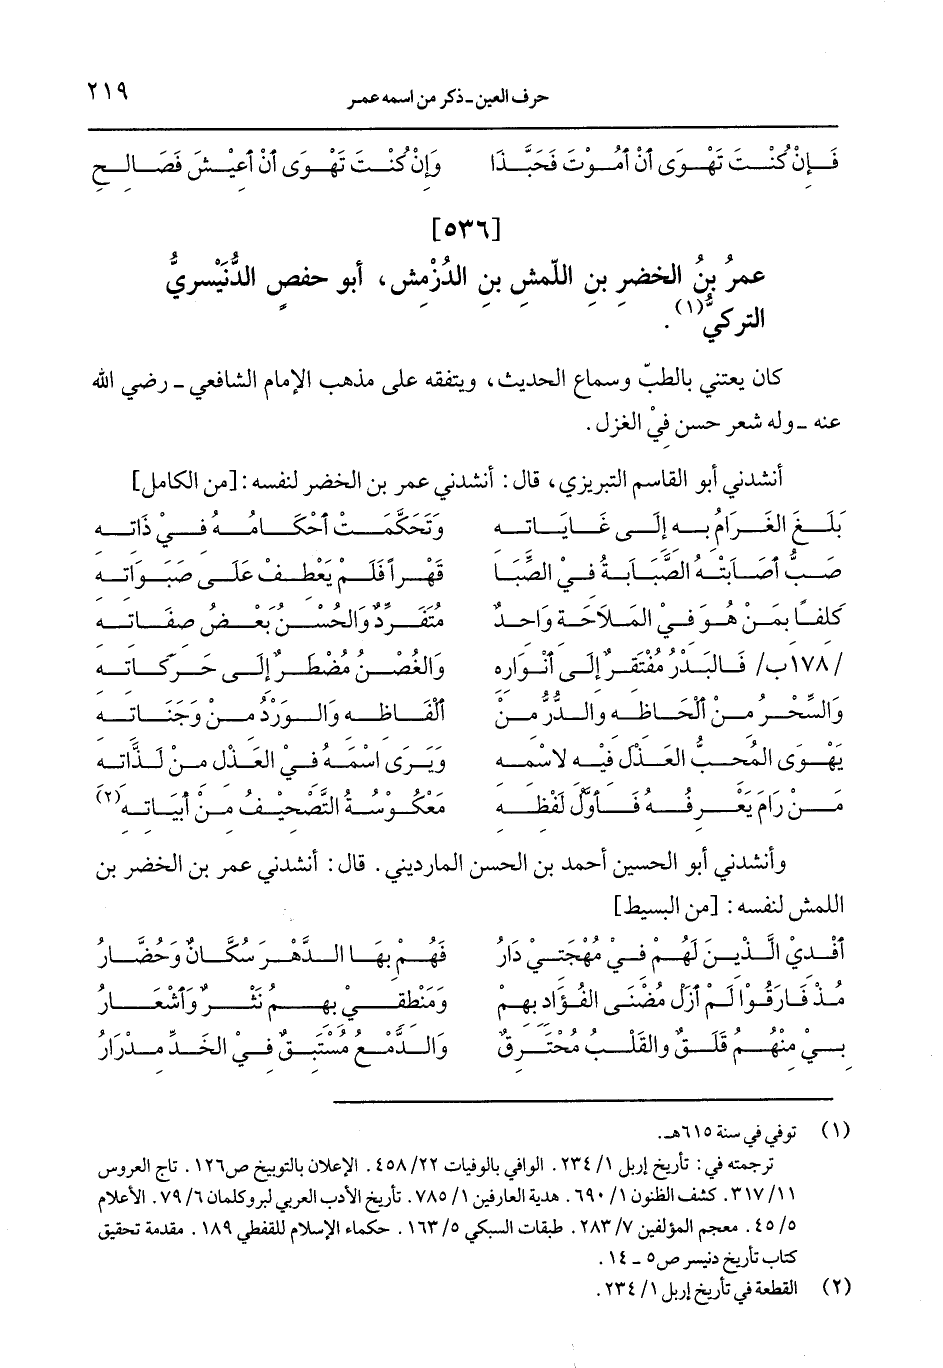 حرف العين ـ ذكر من اسمه عمر ٢١٩
فَإِنْ كُنْتَ تَهْوَى أَنْ أَمُوْتَ فَحَبَّذَا وَإِنْ كُنْتَ تَهْوَى أَنْ أَعِيْشَ فَصَالِحِ
[٥٣٦]
عمرُ بنُ الخضرِ بنِ اللّمشِ بنِ الدُزْمشِ، أبو حفصٍ الدُّنَيْسريُّ
التركيُّ(١).
كان يعتني بالطبّ وسماع الحديث، ويتفقه على مذهب الإمام الشافعي ـ رضي الله
عنه ـ وله شعر حسن فيْ الغزل.
أنشدني أبو القاسم التبريزي، قال: أنشدني عمر بن الخضر لنفسه: [من الكامل]
بَلَغَ الغَرَامُ بِهِ إِلَى غَايَاتِهِ وَتَحَكَّمَتْ أَحْكَامُهُ فِيْ ذَاتِهِ
صَبٌّ أَصَابَتْهُ الصَّبَابَةُ فِيْ الصِّبَا قَهْراً فَلَمْ يَعْطِفْ عَلَى صَبَوَاتِهِ
كَلِفَاً بِمَنْ هُوَ فِيْ المَلَاحَةِ وَاحِدٌ مُتَفَرِّدٌ وَالحُسْنُ بَعْضُ صِفَاتِهِ
/١٧٨ب/ فَالبَدْرُ مُفْتَقِرٌ إِلَى أَنْوَارِهِ وَالغُصْنُ مُضْطَرٌّ إِلَى حَرَكَاتِهِ
وَالسِّحْرُ مِنْ أَلْحَاظِهِ وَالدُّرُّ مِنْ أَلْفَاظِهِ وَالوَرْدُ مِنْ وَجَنَاتِهِ
يَهْوَى المُحِبُّ العَذْلَ فِيْهِ لاسْمِهِ وَيَرَى اسْمَهُ فِيْ العَذْلِ مِنْ لَذَّاتِهِ
مَنْ رَامَ يَعْرِفُهُ فَأَوَّلُ لَفْظِهِ مَعْكُوْسَةُ التَّصْحِيْفُ مِنْ أَبْيَاتِهِ(٢)
وأنشدني أبو الحسين أحمد بن الحسن المارديني. قال: أنشدني عمر بن الخضر بن
اللمش لنفسه: [من البسيط]
أَفْدِيْ الَّذِيْنَ لَهُمْ فِيْ مُهْجَتِيْ دَارُ فَهُمْ بِهَا الدَّهْرَ سُكَّانٌ وَحُضَّارُ
مُذْ فَارَقُوا لَمْ أَزَلْ مُضْنَى الفُؤَادِ بِهِمْ وَمَنْطِقِيْ بِهِمُ نَثْرٌ وَأَشْعَارُ
بِيْ مِنْهُمُ قَلَقٌ وَالقَلْبُ مُحْتَرِقٌ وَالدَّمْعُ مُسْتَبِقٌ فِيْ الخَدِّ مِدْرَارُ
(١) توفي في سنة ٦١٥هـ.
ترجمته في: تأريخ إربل ١/ ٢٣٤. الوافي بالوفيات ٢٢/ ٤٥٨. الإعلان بالتوبيخ ص١٢٦. تاج العروس
١١/ ٣١٧. كشف الظنون ١/ ٦٩٠. هدية العارفين ١/ ٧٨٥. تأريخ الأدب العربي لبروكلمان ٦/ ٧٩. الأعلام
٥/ ٤٥. معجم المؤلفين ٧/ ٢٨٣. طبقات السبكي ٥/ ١٦٣. حكماء الإسلام للقفطي ١٨٩. مقدمة تحقيق
كتاب تأريخ دنيسر ص٥ ـ ١٤.
(٢) القطعة في تأريخ إربل ١/ ٢٣٤.